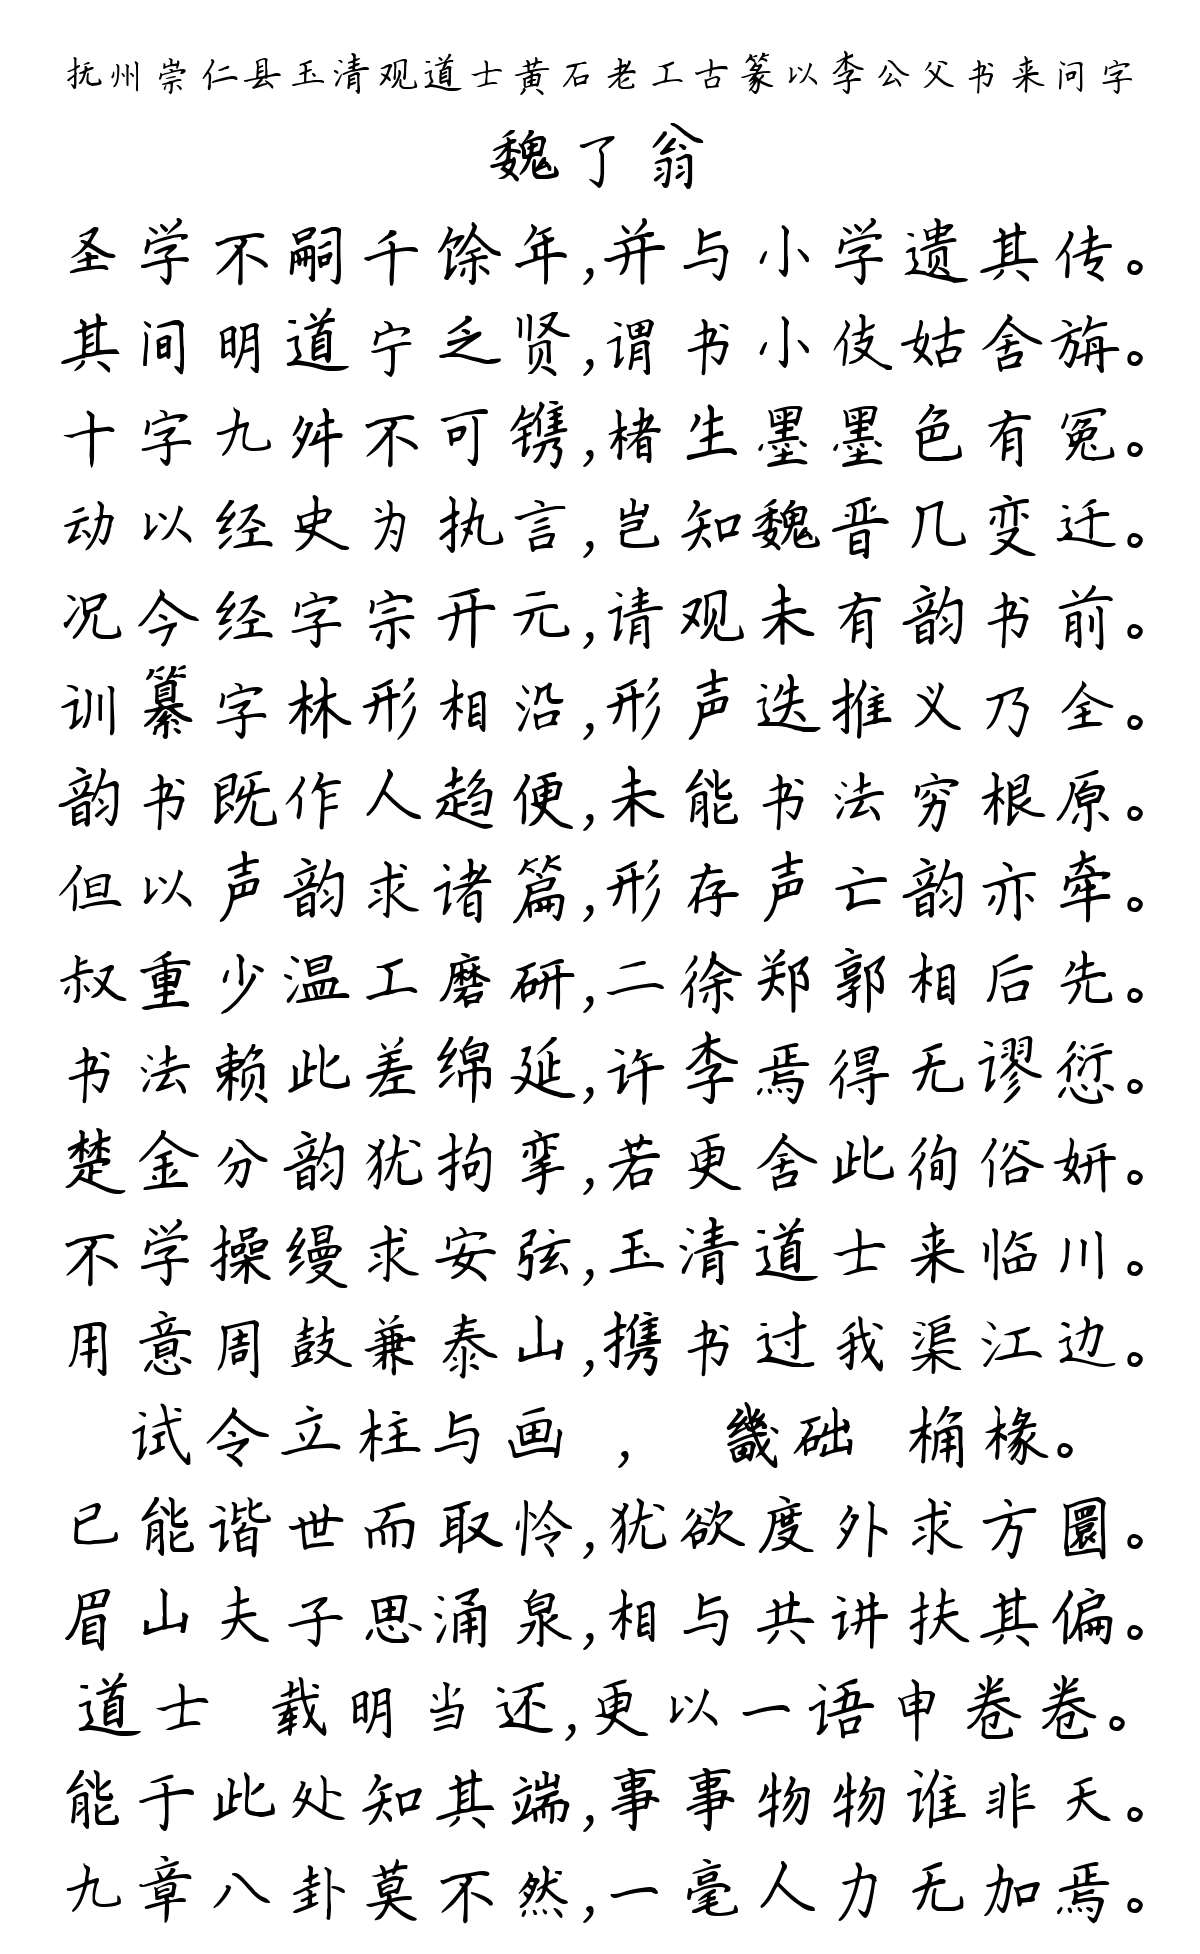 抚州崇仁县玉清观道士黄石老工古篆以李公父书来问字
魏了翁
圣学不嗣千馀年,并与小学遗其传。
其间明道宁乏贤,谓书小伎姑舍旃。
十字九舛不可镌,楮生墨墨色有冤。
动以经史为执言,岂知魏晋几变迁。
况今经字宗开元,请观未有韵书前。
训纂字林形相沿,形声迭推义乃全。
韵书既作人趋便,未能书法穷根原。
但以声韵求诸篇,形存声亡韵亦牵。
叔重少温工磨研,二徐郑郭相后先。
书法赖此差绵延,许李焉得无谬愆。
楚金分韵犹拘挛,若更舍此徇俗妍。
不学操缦求安弦,玉清道士来临川。
用意周鼓兼泰山,携书过我渠江边。
试令立柱与画 , 畿础 桷椽。
已能谐世而取怜,犹欲度外求方圜。
眉山夫子思涌泉,相与共讲扶其偏。
道士 载明当还,更以一语申卷卷。
能于此处知其端,事事物物谁非天。
九章八卦莫不然,一毫人力无加焉。